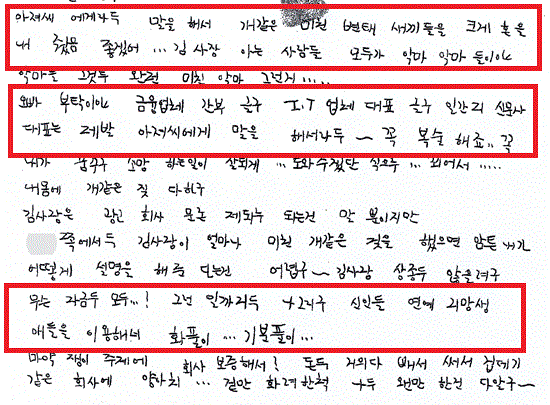 아저씨 에게라두 말을 해서 개같은 미친 변태 새끼들을 크게 혼을
내 줬음 좋겠어 ... 김 사장 아는 사람들 모두가 악마 악마 들이야
악마를 그것두 완전 미친 악마 그런게 ....
오빠 부탁이야 금융업체 간부 글구 I.T 업체 대표 글구 일간지 신문사
대표는 제발 아저씨에게 말을 해서라두~ 꼭 복수 해죠.. 꼭
내가 꿈꾸구 소망 하는일이 잘되게 ... 도와주겠단 식으루 ... 꾀어서 .....
내몸에 개같은 짓 다하구
김사장은 광고 회사 모든 제퇴는 되는건 말 뿐이지만
쪽에서두 김사장이 얼마나 미친 개같은 것을 했으면 암튼 내가
어떻게 설명을 해 줘 되는건 어렵구~ 김사장 상종두 않을려구
무슨 자금두 모두...! 그런 일까지두 그리구 신인들 연예 지망생
애들을 이용해서 화풀이 ... 기분풀이 ...
마약 쟁이 주제에 회사 보증해서! 돈두 거의다 빼서 써서 겁데기
같은 회사에 양아치 ... 겉만 화려한척 그두 왠만 한건 다안구~